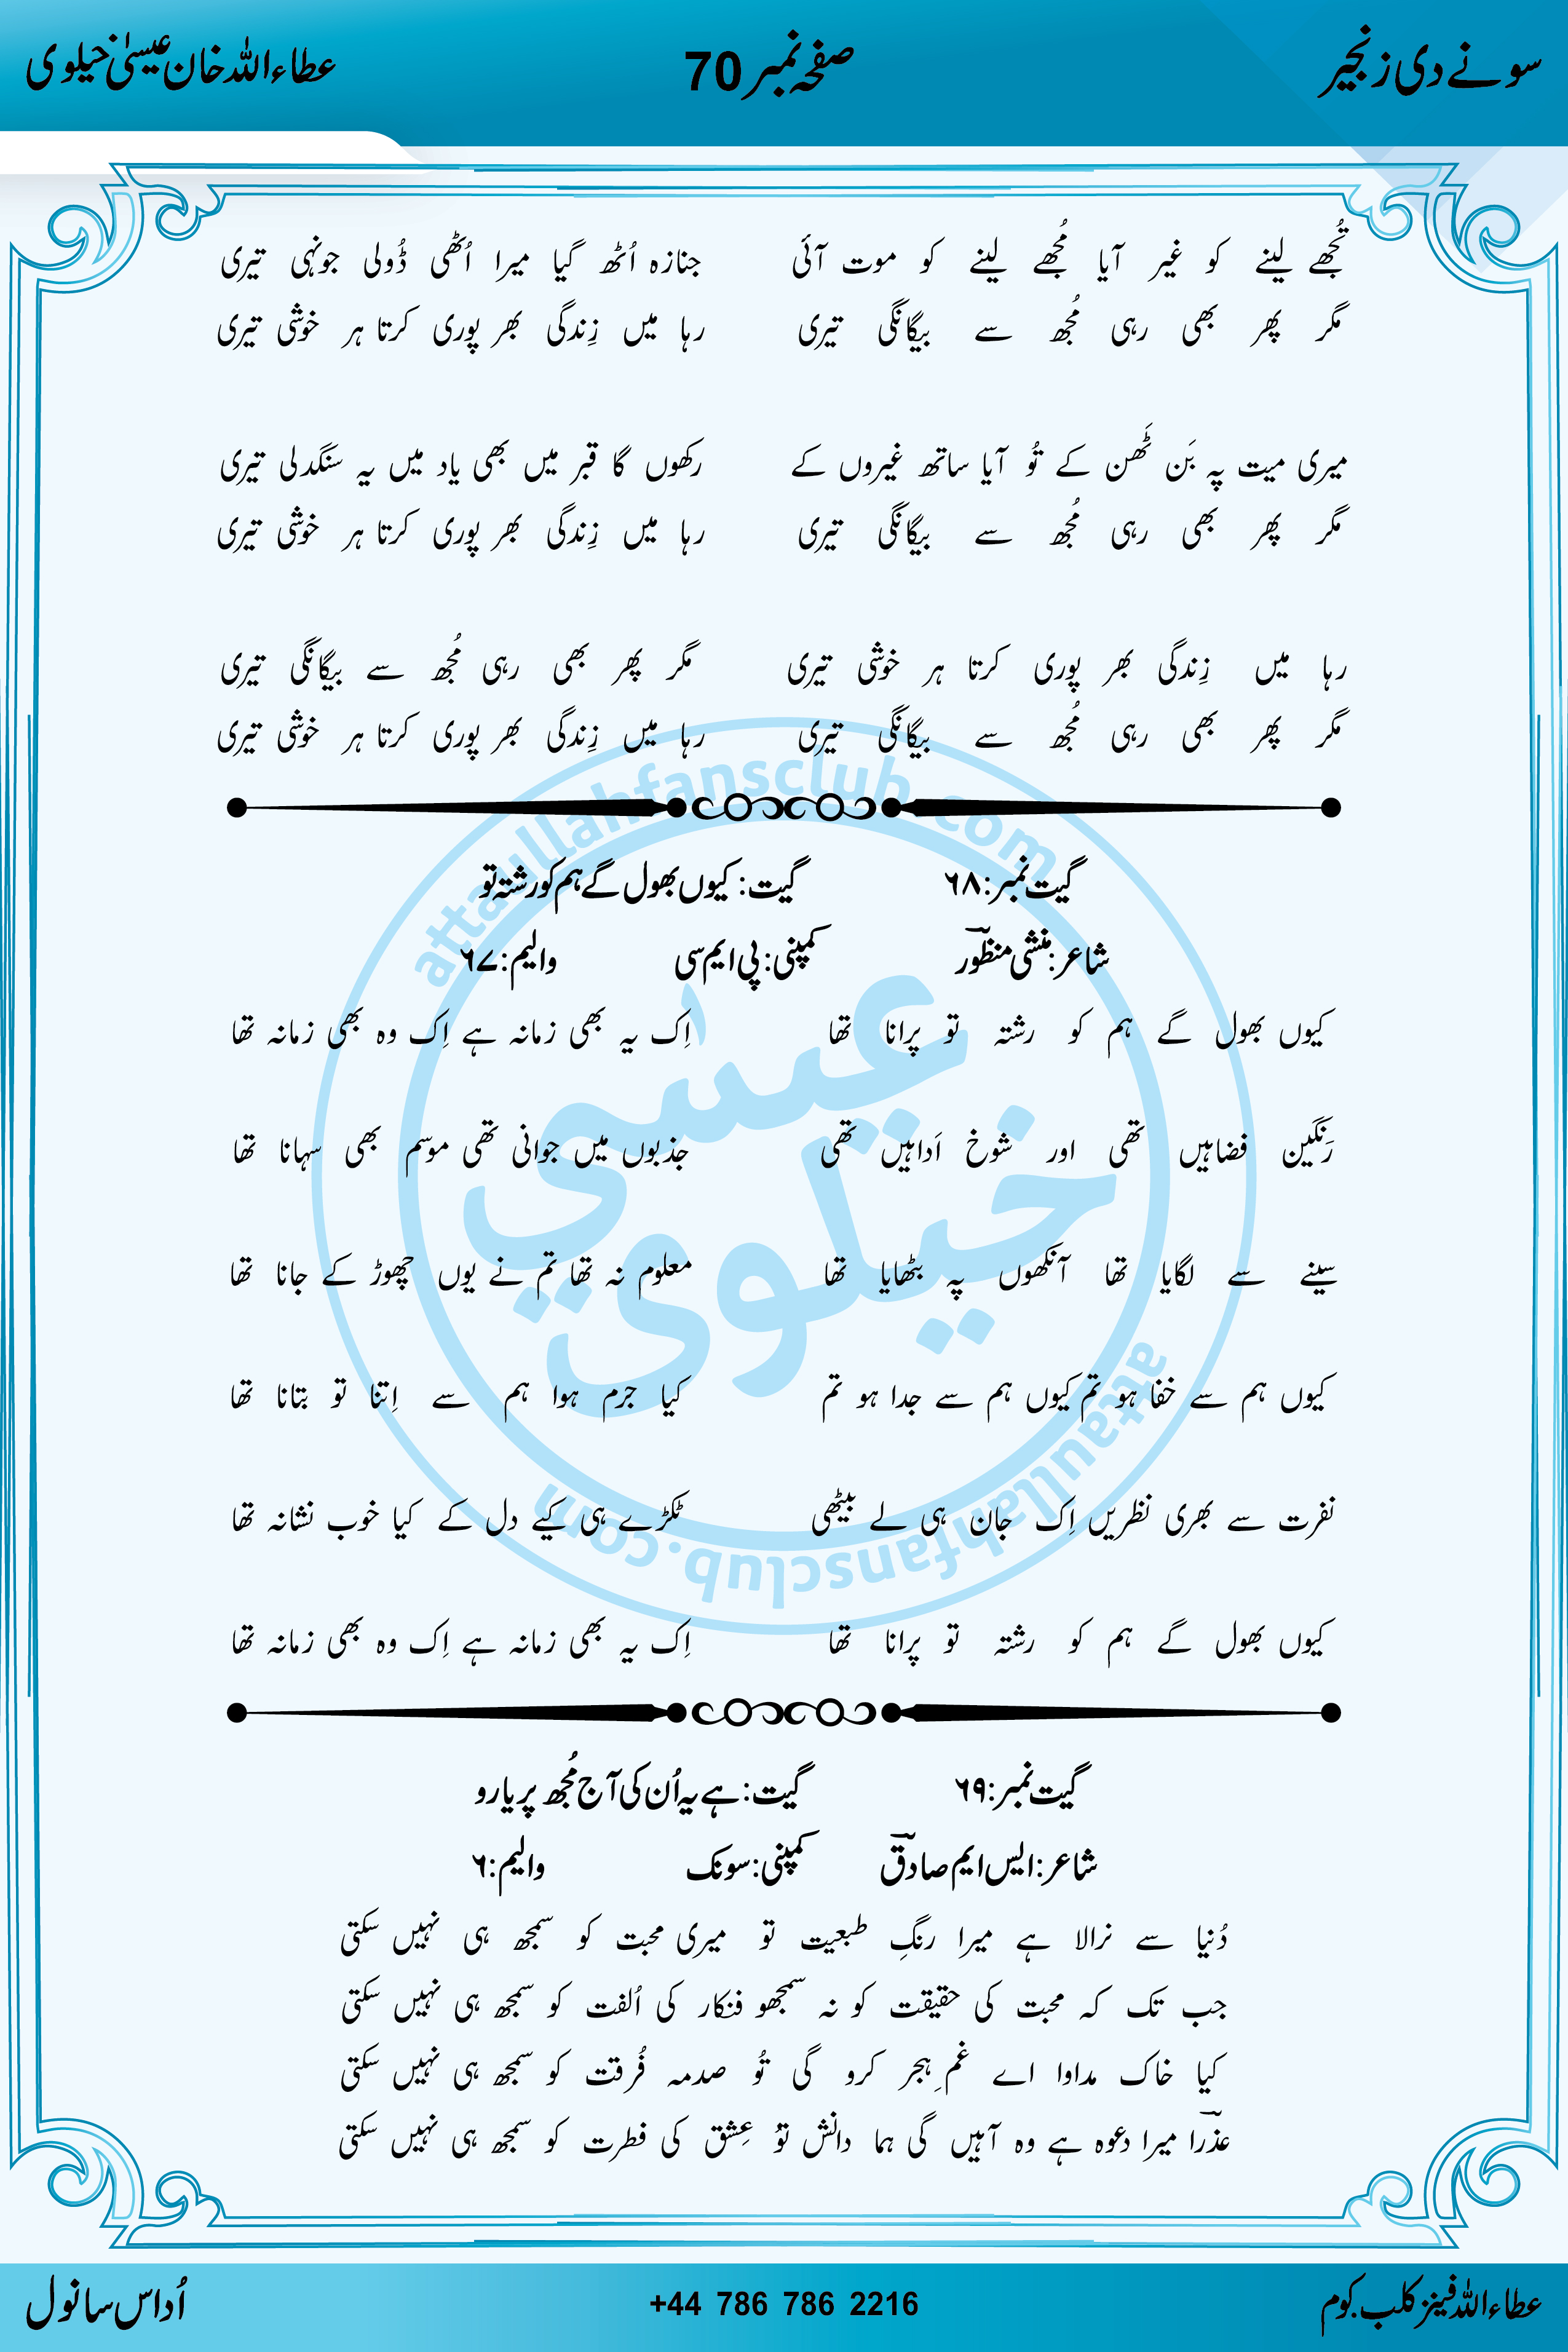 سونے دی زنجیر صفحہ نمبر 70 عطاءاللہ خان عیسیٰ خیلوی
تُجھے لینے کو غیر آیا مُجھے لینے کو موت آئی جنازہ اُٹھ گیا میرا اُٹھی ڈولی جونہی تیری
مگر پھر بھی رہی مُجھ سے بیگانگی تیری رہا میں زِندگی بھر پوری کرتا ہر خوشی تیری
میری میت پہ بَن ٹَھن کے تُو آیا ساتھ غیروں کے رکھوں گا قبر میں بھی یاد میں یہ سنگدلی تیری
مگر پھر بھی رہی مُجھ سے بیگانگی تیری رہا میں زِندگی بھر پوری کرتا ہر خوشی تیری
رہا میں زِندگی بھر پوری کرتا ہر خوشی تیری مگر پھر بھی رہی مُجھ سے بیگانگی تیری
مگر پھر بھی رہی مُجھ سے بیگانگی تیری رہا میں زِندگی بھر پوری کرتا ہر خوشی تیری
گیت نمبر: ۶۸ گیت: کیوں بھول گے ہم کو رشتہ تو
شاعر: منشی منظورؔ کمپنی: پی ایم سی والیم: ۶۷
کیوں بھول گے ہم کو رشتہ تو پرانا تھا اِک یہ بھی زمانہ ہے اِک وہ بھی زمانہ تھا
رَنگین فضاہیں تھی اور شوخ اَداہیں تھی جذبوں میں جوانی تھی موسم بھی سہانا تھا
سینے سے لگایا تھا آنکھوں پہ بٹھایا تھا معلوم نہ تھا تم نے یوں چھوڑ کے جانا تھا
کیوں ہم سے خفا ہو تم کیوں ہم سے جدا ہو تم کیا جرم ہوا ہم سے اِتنا تو بتانا تھا
نفرت سے بھری نظریں اِک جان ہی لے بیٹھی ٹکڑے ہی کیے دل کے کیا خوب نشانہ تھا
کیوں بھول گے ہم کو رشتہ تو پرانا تھا اِک یہ بھی زمانہ ہے اِک وہ بھی زمانہ تھا
گیت نمبر: ۶۹ گیت: ہے یہ اُن کی آج مُجھ پر یارو
شاعر: ایس ایم صادقؔ کمپنی: سونک والیم: ۶
دُنیا سے نرالا ہے میرا رنگِ طبعیت تو میری محبت کو سمجھ ہی نہیں سکتی
جب تک کہ محبت کی حقیقت کو نہ سمجھو فنکار کی اُلفت کو سمجھ ہی نہیں سکتی
کیا خاک مداوا اے غمِ ہجر کرو گی تُو صدمہ فُرقت کو سمجھ ہی نہیں سکتی
عذراؔ میرا دعوہ ہے وہ آہیں گی ہما دانش تُو عِشق کی فطرت کو سمجھ ہی نہیں سکتی
attaullahfansclub.com
عیسٰی
خیلوی
attaullahfansclub.com
عطاءاللہ فینز کلب.کوم +44 786 786 2216 اُداس سانول